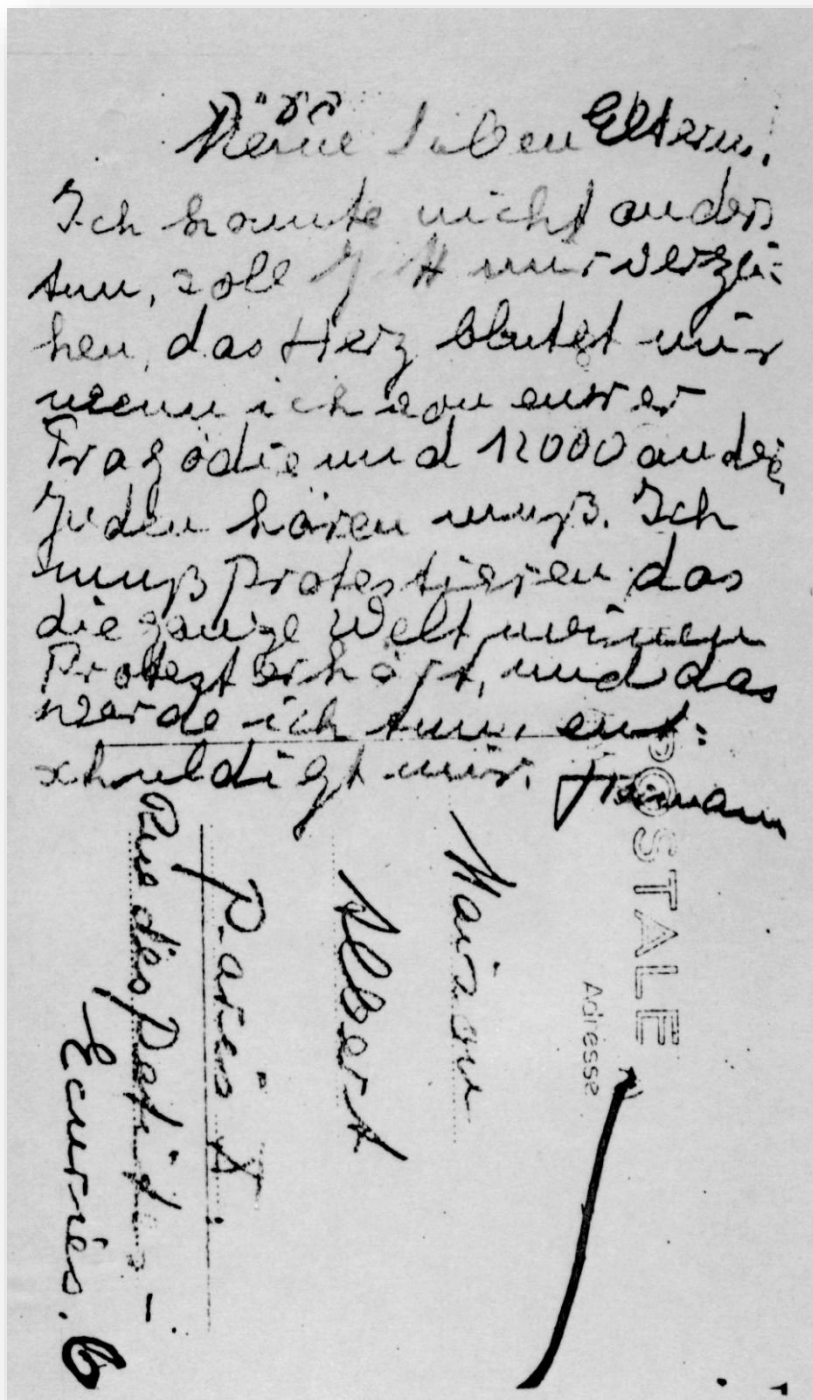 ב"ה
Meine lieben Eltern.
Ich konnte nicht anders
tun, soll G-tt mir verzei-
hen, das Herz blutet mir
wenn ich von eurer
Tragödie und 12000 andere
Juden hören muß. Ich
muß protestieren das
die ganze Welt meinen
Protest erhört, und das
werde ich tun, ent-
schuldigt mir. Hermann
POSTALE
Adresse
Maison
Albert
Paris X.
Rue des Petites-
Ecuries. 6